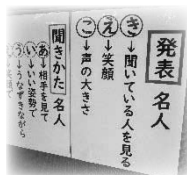 発表名人
き→聞いている人を見る
え→笑顔
こ→声の大きさ
聞きかた名人
あ→相手を見て
い→いい姿勢で
う→うなずきながら
え→笑顔で